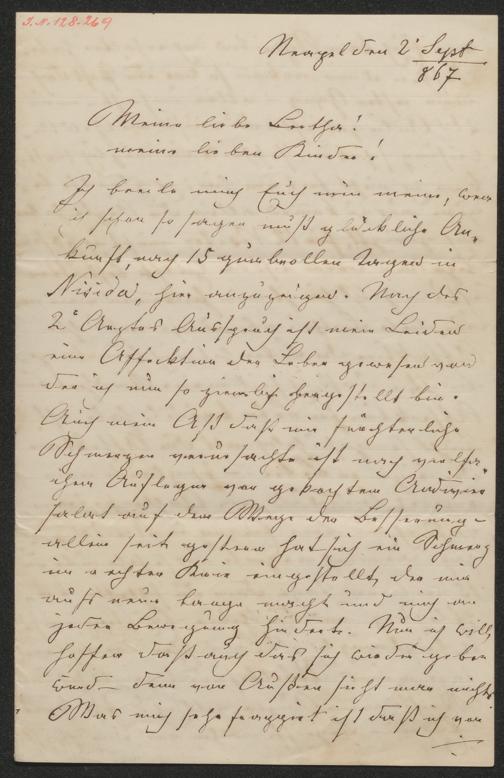 I.N. 128.269
Neapel den 2t Sept
867
Meine liebe Bertha!
meine lieben Kinder!
Ich beeile mich Euch nun meine, wenn
ich schon so sagen muß glückliche An-
kunft, nach 15 qualvollen Tagen in
Nisida, hier anzuzeigen. Nach des
2t Arztes Ausspruch ist mein Leiden
eine Affecktion der Leber gewesen von
der ich nun so ziemlich hergestellt bin.
Auch mein daß mir fürchterliche
Schmerzen verursachte ist nach vielfa-
chem Auflegen von gekochten Andivien
salat auf dem Wege der Besserung –
allein seit gestern hat sich ein Schmerz
im rechten Knie eingestellt, der mir
aufs neue bange macht und mich an
jeder Bewegung hindert. Nun ich will
hoffen daß auch das sich wieder geben
wird – denn von Außen sieht man nichts
Was mich sehr frappirt ist daß ich von